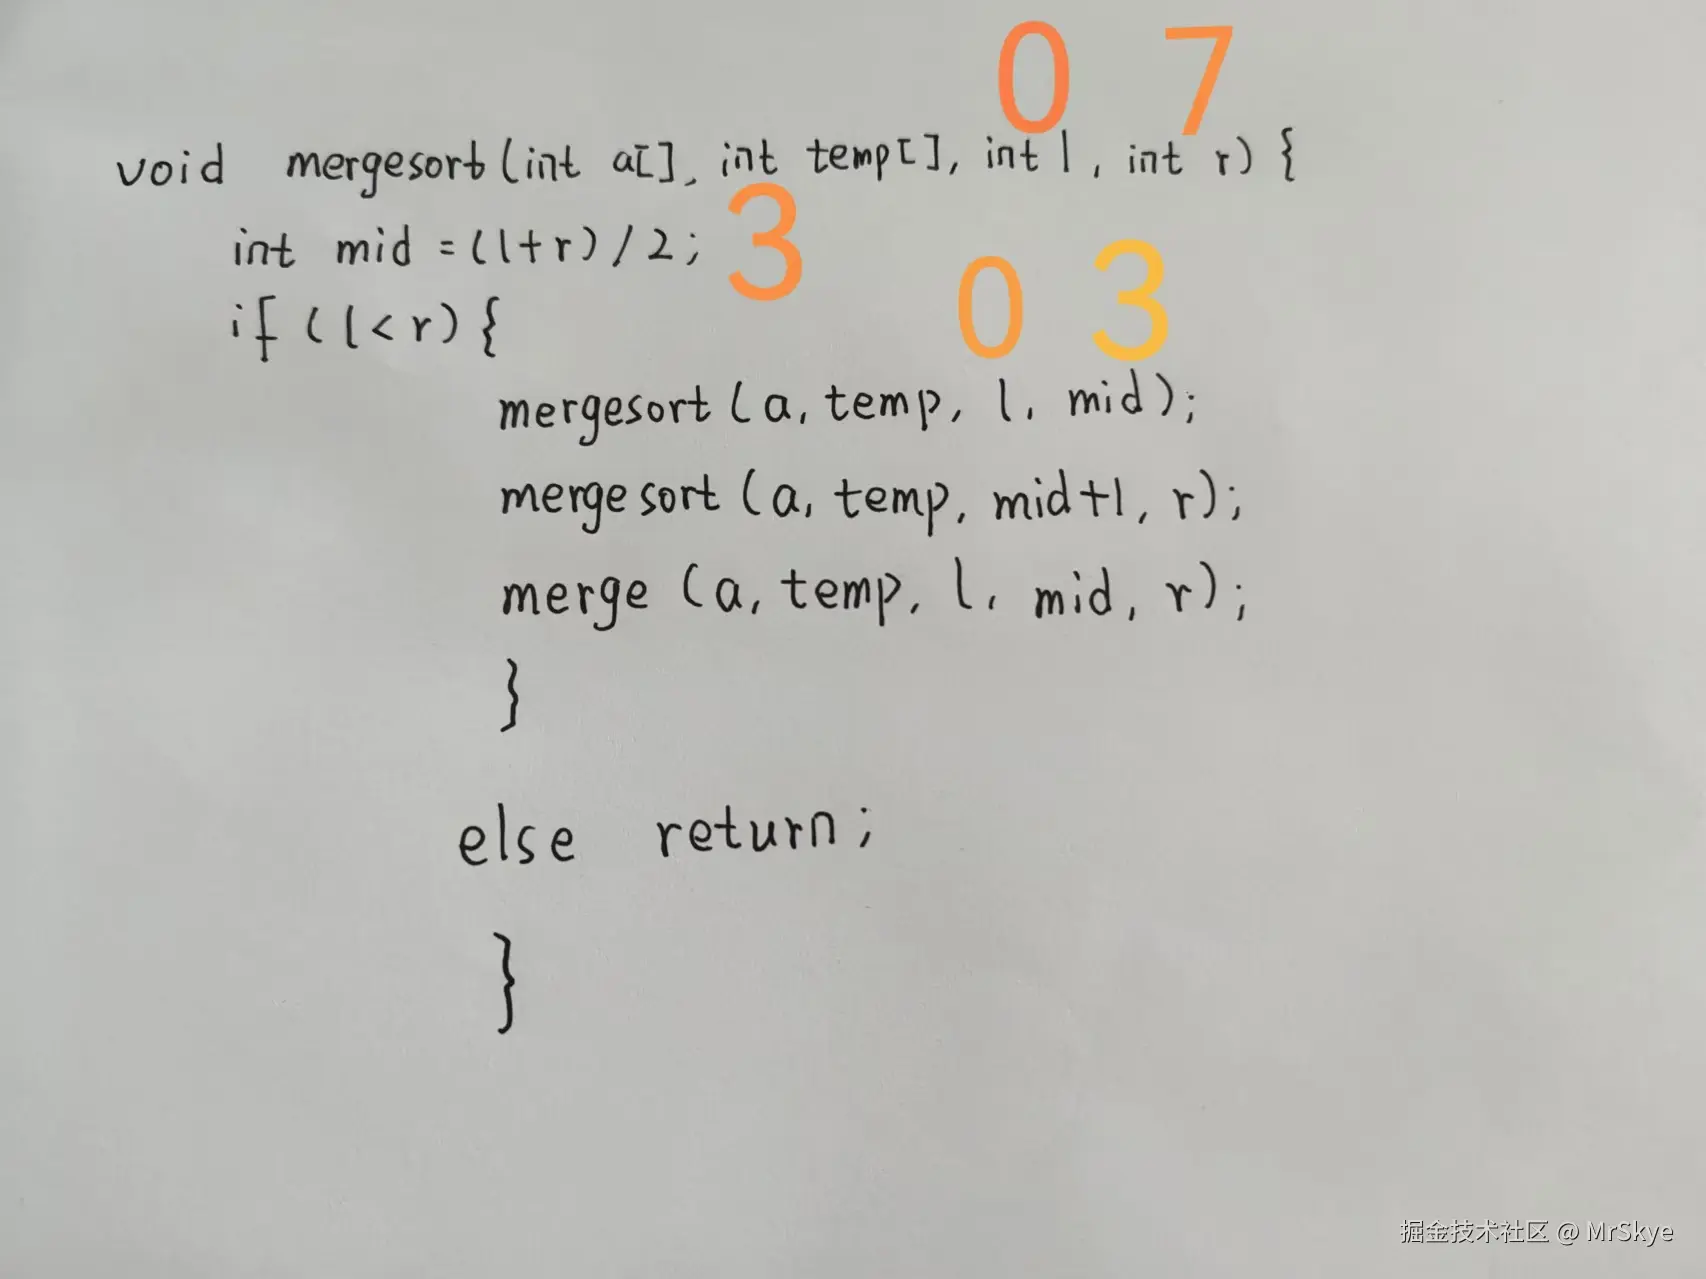 0 7
void mergesort(int a[], int temp[], int l, int r) {
int mid = (l+r)/2; 3
0 3
if (l<r) {
mergesort(a, temp, l, mid);
mergesort(a, temp, mid+1, r);
merge(a, temp, l, mid, r);
}
else return;
}
掘金技术社区 @ MrSkye